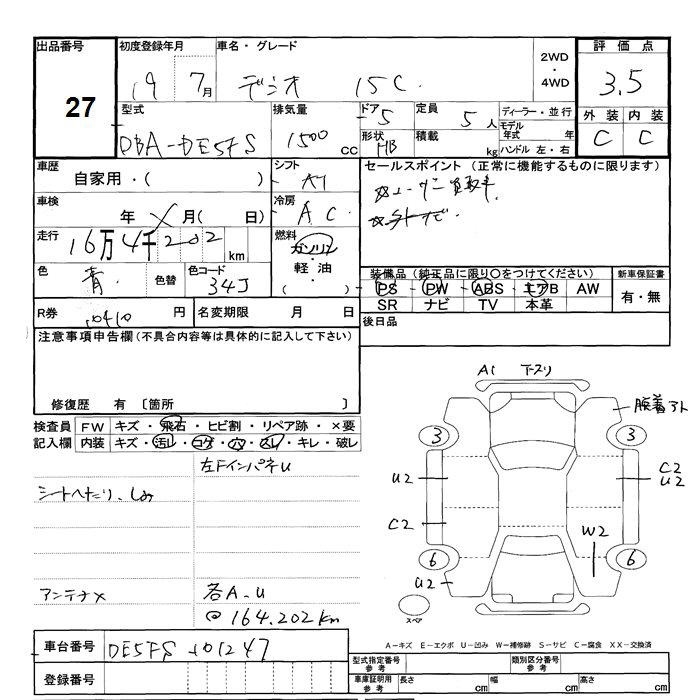 出品番号 初度登録年月 車名・グレード 2WD・4WD 評価点
27 19 7月 デミオ 15C. 3.5
型式 排気量 ドア 5 定員 5人 ディーラー・並行 外装 内装
DBA-DE5FS 1500cc 形状 HB 積載 kg モデル年式 年 ハンドル 左・右 C C
車歴 シフト セールスポイント (正常に機能するものに限ります)
自家用・( ) AT
車検 冷房
年 X月( 日) A.C.
走行 燃料
16万4千202km ガソリン・軽油・( )
色 色替 色コード 装備品 (純正品に限り○をつけてください) 新車保証書
青. 34J PS PW ABS エアB AW 有・無
SR ナビ TV 本革
R券 10410円 名変期限 月 日 後日品
注意事項申告欄 (不具合内容等は具体的に記入して下さい)
修復歴 有 〔箇所 〕
検査員記入欄 FW キズ・飛石・ヒビ割・リペア跡・×要
内装 キズ・汚レ・コゲ・穴・スレ・キレ・破レ
左FインパネU
シートへたり、しみ
アンテナX 各A-U
@164.202km
A1 下スリ
3 3
U2 C2
U2
C2 W2
6 6
U2
スペア
A-キズ E-エクボ U-凹み W-補修跡 S-サビ C-腐食 XX-交換済
車台番号 DE5FS-101247
登録番号
型式指定番号 参考 類別区分番号 参考
車庫証明用 参考 長さ cm 幅 cm 高さ cm